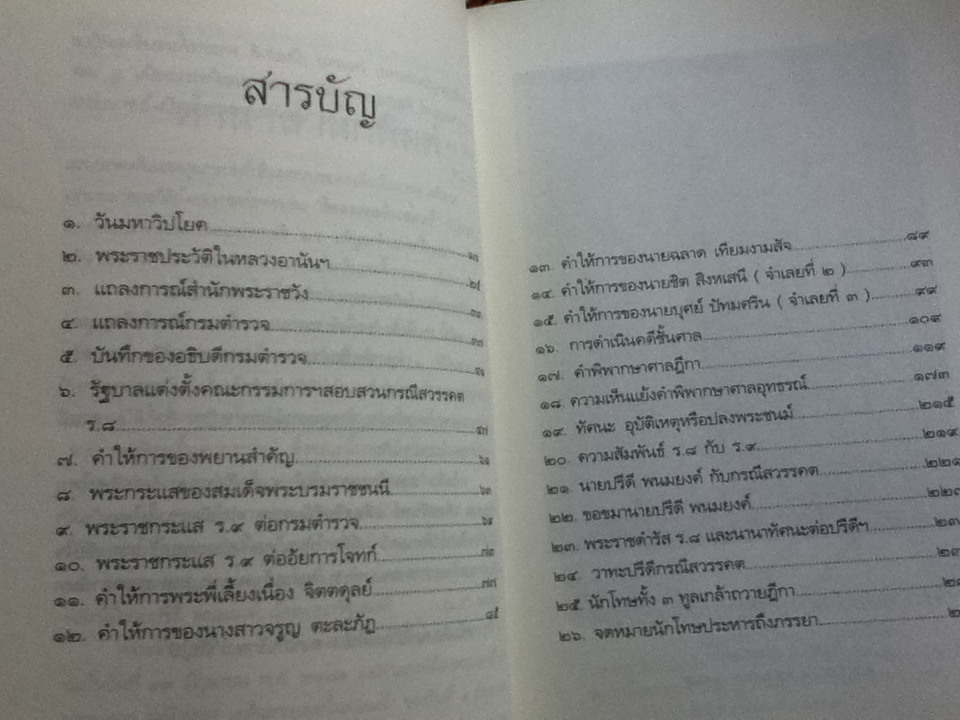 สารบัญ
๑. วันมหาวิปโยค
๒. พระราชประวัติในหลวงอานันฯ
๓. แถลงการณ์สำนักพระราชวัง
๔. แถลงการณ์กรมตำรวจ
๕. บันทึกของอธิบดีกรมตำรวจ
๖. รัฐบาลแต่งตั้งคณะกรรมการฯสอบสวนกรณีสวรรคต
ร.๘
๗. คำให้การของพยานสำคัญ
๘. พระกระแสของสมเด็จพระบรมราชชนนี
๙. พระราชกระแส ร.๙ ต่อกรมตำรวจ
๑๐. พระราชกระแส ร.๙ ต่ออัยการโจทก์ ๗๑
๑๑. คำให้การพระพี่เลี้ยงเนื่อง จิตตดุลย์ ๗๗
๑๒. คำให้การของนางสาวจรูญ ตะละภัฎ ๘๕
๑๓. คำให้การของนายฉลาด เทียมงามสัจ ๘๙
๑๔. คำให้การของนายชิต สิงหเสนี ( จำเลยที่ ๒ ) ๙๓
๑๕. คำให้การของนายบุศย์ ปัทมศริน ( จำเลยที่ ๓ ) ๙๙
๑๖. การดำเนินคดีชั้นศาล ๑๐๙
๑๗. คำพิพากษาศาลฎีกา ๑๑๙
๑๘. ความเห็นแย้งคำพิพากษาศาลอุทธรณ์ ๑๗๓
๑๙. ทัศนะ อุบัติเหตุหรือปลงพระชนม์ ๒๑๕
๒๐. ความสัมพันธ์ ร.๘ กับ ร.๙ ๒๑๙
๒๑. นายปรีดี พนมยงค์ กับกรณีสวรรคต ๒๒๑
๒๒. ขอขมานายปรีดี พนมยงค์ ๒๒๗
๒๓. พระราชดำรัส ร.๘ และนานาทัศนะต่อปรีดีฯ
๒๔. วาทะปรีดีกรณีสวรรคต
๒๕. นักโทษทั้ง ๓ ทูลเกล้าถวายฎีกา
๒๖. จดหมายนักโทษประหารถึงภรรยา